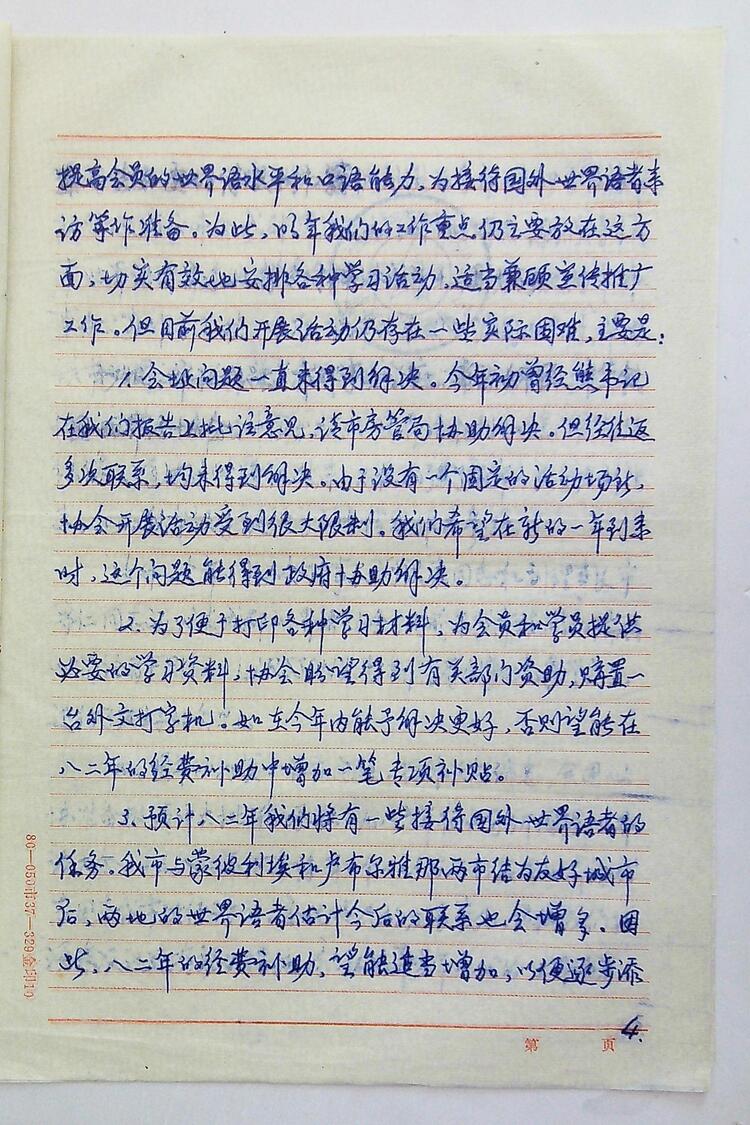 提高会员的世界语水平和口语能力，为接待国外世界语者来
访等作准备。为此，明年我们的工作重点仍主要放在这方
面，切实有效地安排各种学习活动，适当兼顾宣传推广
工作。但目前我们开展活动仍存在一些实际困难，主要是：
1. 会址问题一直未得到解决。今年初曾经熊书记
在我们报告上批注意见，请市房管局协助解决。但经往返
多次联系，均未得到解决。由于没有一个固定的活动场所，
协会开展活动受到很大限制。我们希望在新的一年到来
时，这个问题能得到政府协助解决。
2. 为了便于打印各种学习材料，为会员和学员提供
必要的学习资料，协会盼望得到有关部门资助，购置一
台外文打字机。如在今年内能予解决更好，否则望能在
八二年的经费补助中增加一笔专项补贴。
3. 预计八二年我们将有一些接待国外世界语者的
任务。我市与蒙彼利埃和卢布尔雅那两市结为友好城市
后，两地的世界语者估计今后的联系也会增多。因
此，八二年的经费补助，望能适当增加，以便逐步添
4.
第 页